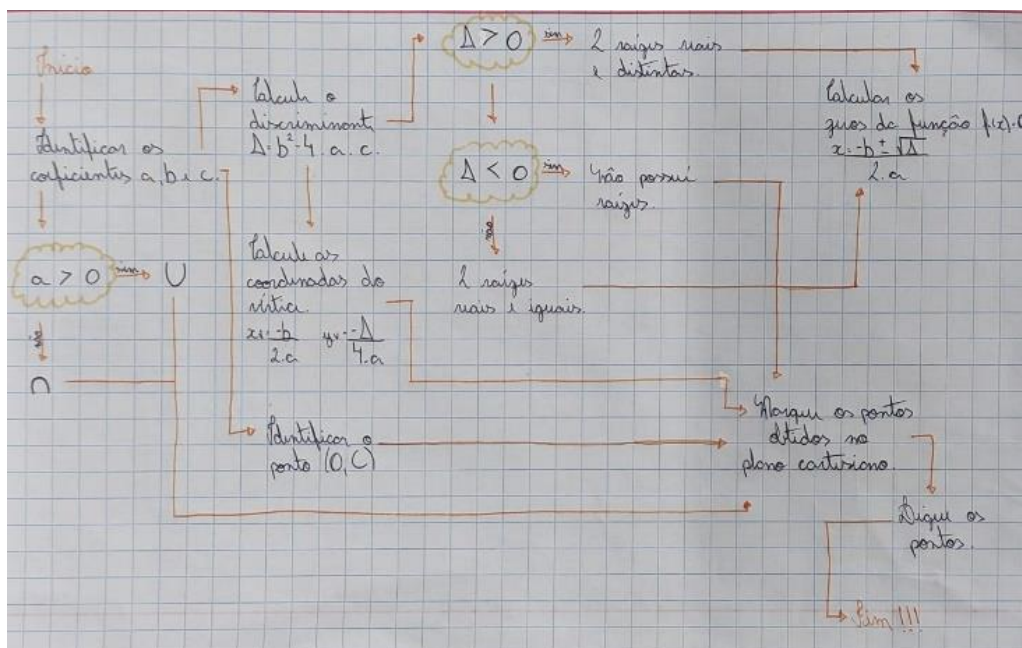 Início
Identificar os
coeficientes a, b e c.
a > 0
sim
∪
não
∩
Calcule o
discriminante
Δ = b² - 4 . a . c.
Calcule as
coordenadas do
vértice.
xv = -b / 2.a yv = -Δ / 4.a
Identificar o
ponto (0,C)
Δ > 0
sim
2 raízes reais
e distintas.
Δ < 0
sim
não possui
raízes.
não
2 raízes
reais e iguais.
Calcular os
zeros da função f(x)=0
x = -b ± √Δ / 2.a
Marque os pontos
obtidos no
plano cartesiano.
Ligue os
pontos.
Fim!!!